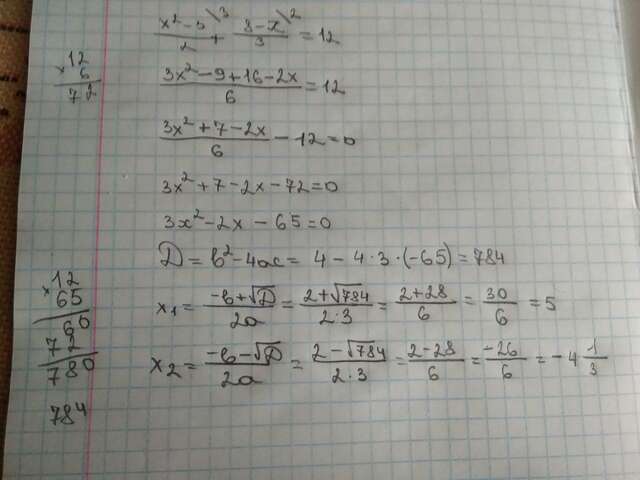 (x² - 3)/2 \3 + (8 - x)/3 \2 = 12
(3x² - 9 + 16 - 2x)/6 = 12
(3x² + 7 - 2x)/6 - 12 = 0
3x² + 7 - 2x - 72 = 0
3x² - 2x - 65 = 0
D = b² - 4ac = 4 - 4·3·(-65) = 784
x₁ = (-b + √D)/2a = (2 + √784)/2·3 = (2 + 28)/6 = 30/6 = 5
x₂ = (-b - √D)/2a = (2 - √784)/2·3 = (2 - 28)/6 = -26/6 = -4 1/3
12
× 6
72
12
× 65
60
72
780
784